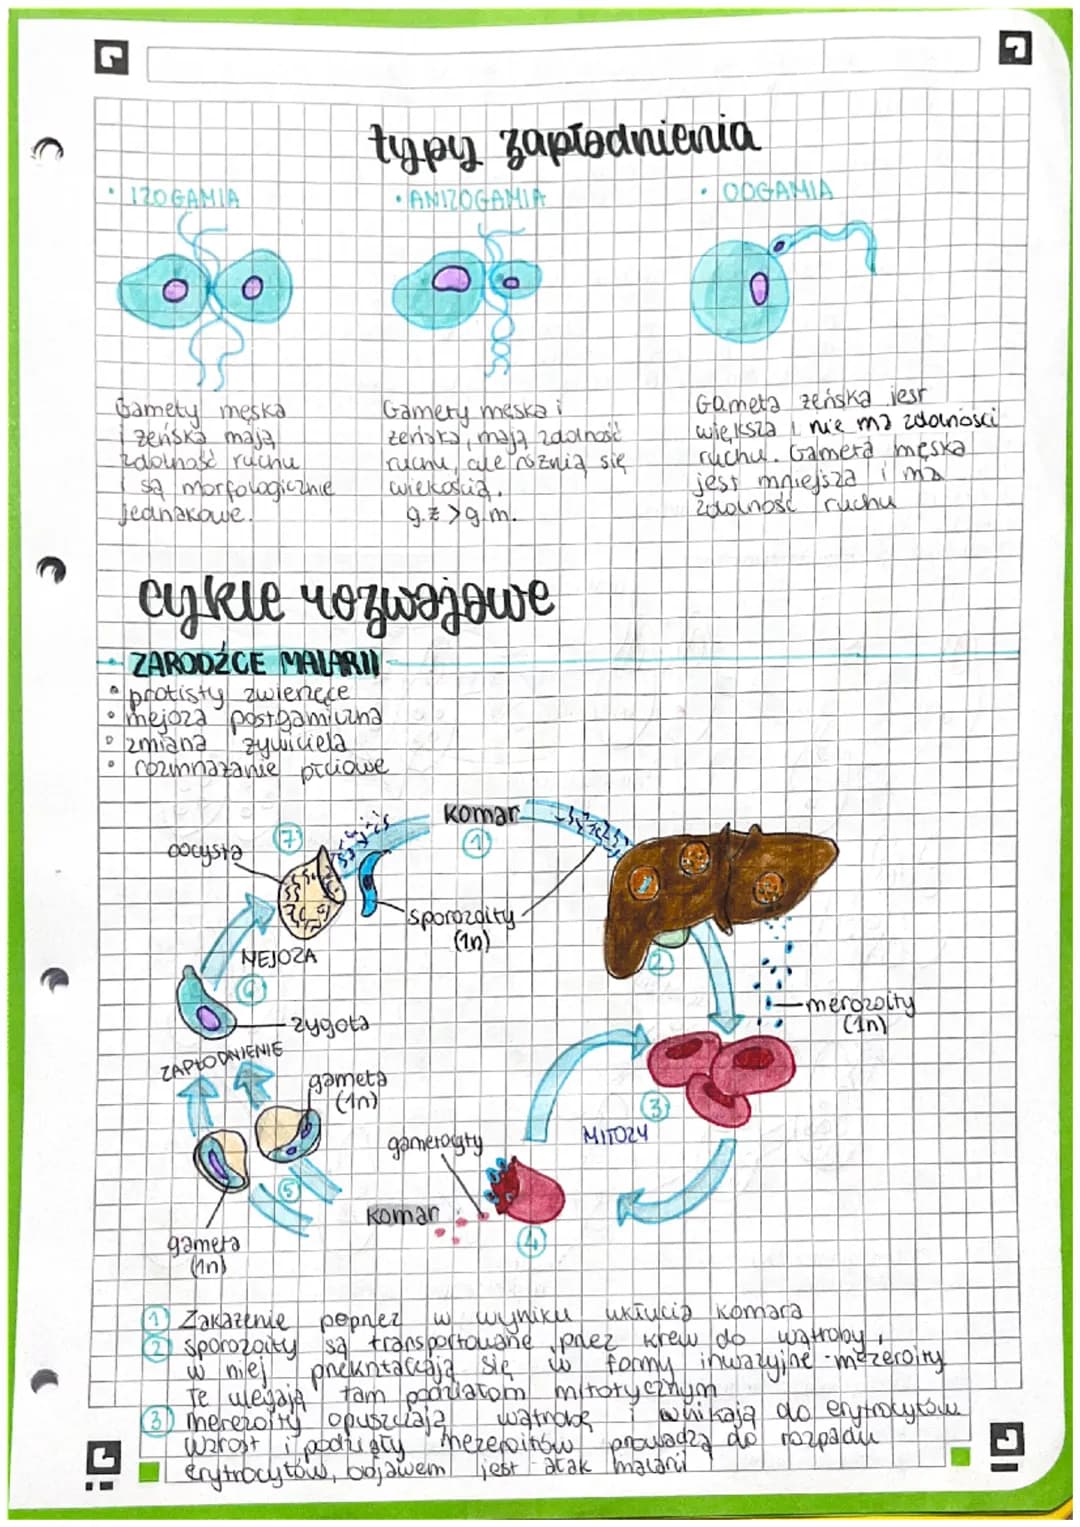 typy zapłodnienia
• IZOGAMIA
• ANIZOGAMIA
• OOGAMIA
Gamety męska
i żeńska mają
zdolność ruchu
i są morfologicznie
jednakowe.
Gamety męska i
żeńska, mają zdolność
ruchu, ale różnią się
wiekością.
g.ż > g.m.
Gameta żeńska jest
większa i nie ma zdolności
ruchu. Gameta męska
jest mniejsza i ma
zdolność ruchu
cykle rozwojowe
• ZARODŹCE MALARII
• protisty zwierzęce
• mejoza postgamiczna
• zmiana żywiciela
• rozmnażanie płciowe
komar
1
7
oocysta
sporozoity
(1n)
MEJOZA
6
2
merozoity
(1n)
zygota
ZAPŁODNIENIE
gameta
(1n)
3
MITOZY
gametocyty
5
komar
4
gameta
(1n)
1 Zakażenie poprzez w wyniku ukłucia komara
2 sporozoity są transportowane przez krew do wątroby,
w niej przekształcają się w formy inwazyjne - mezeroity
Te ulegają tam podziałom mitotycznym
3 merezoity opuszczają wątrobę i wnikają do erytrocytów
wzrost i podziały mezeroitów prowadzą do rozpadu
erytrocytów, bojawem jest atak malarii